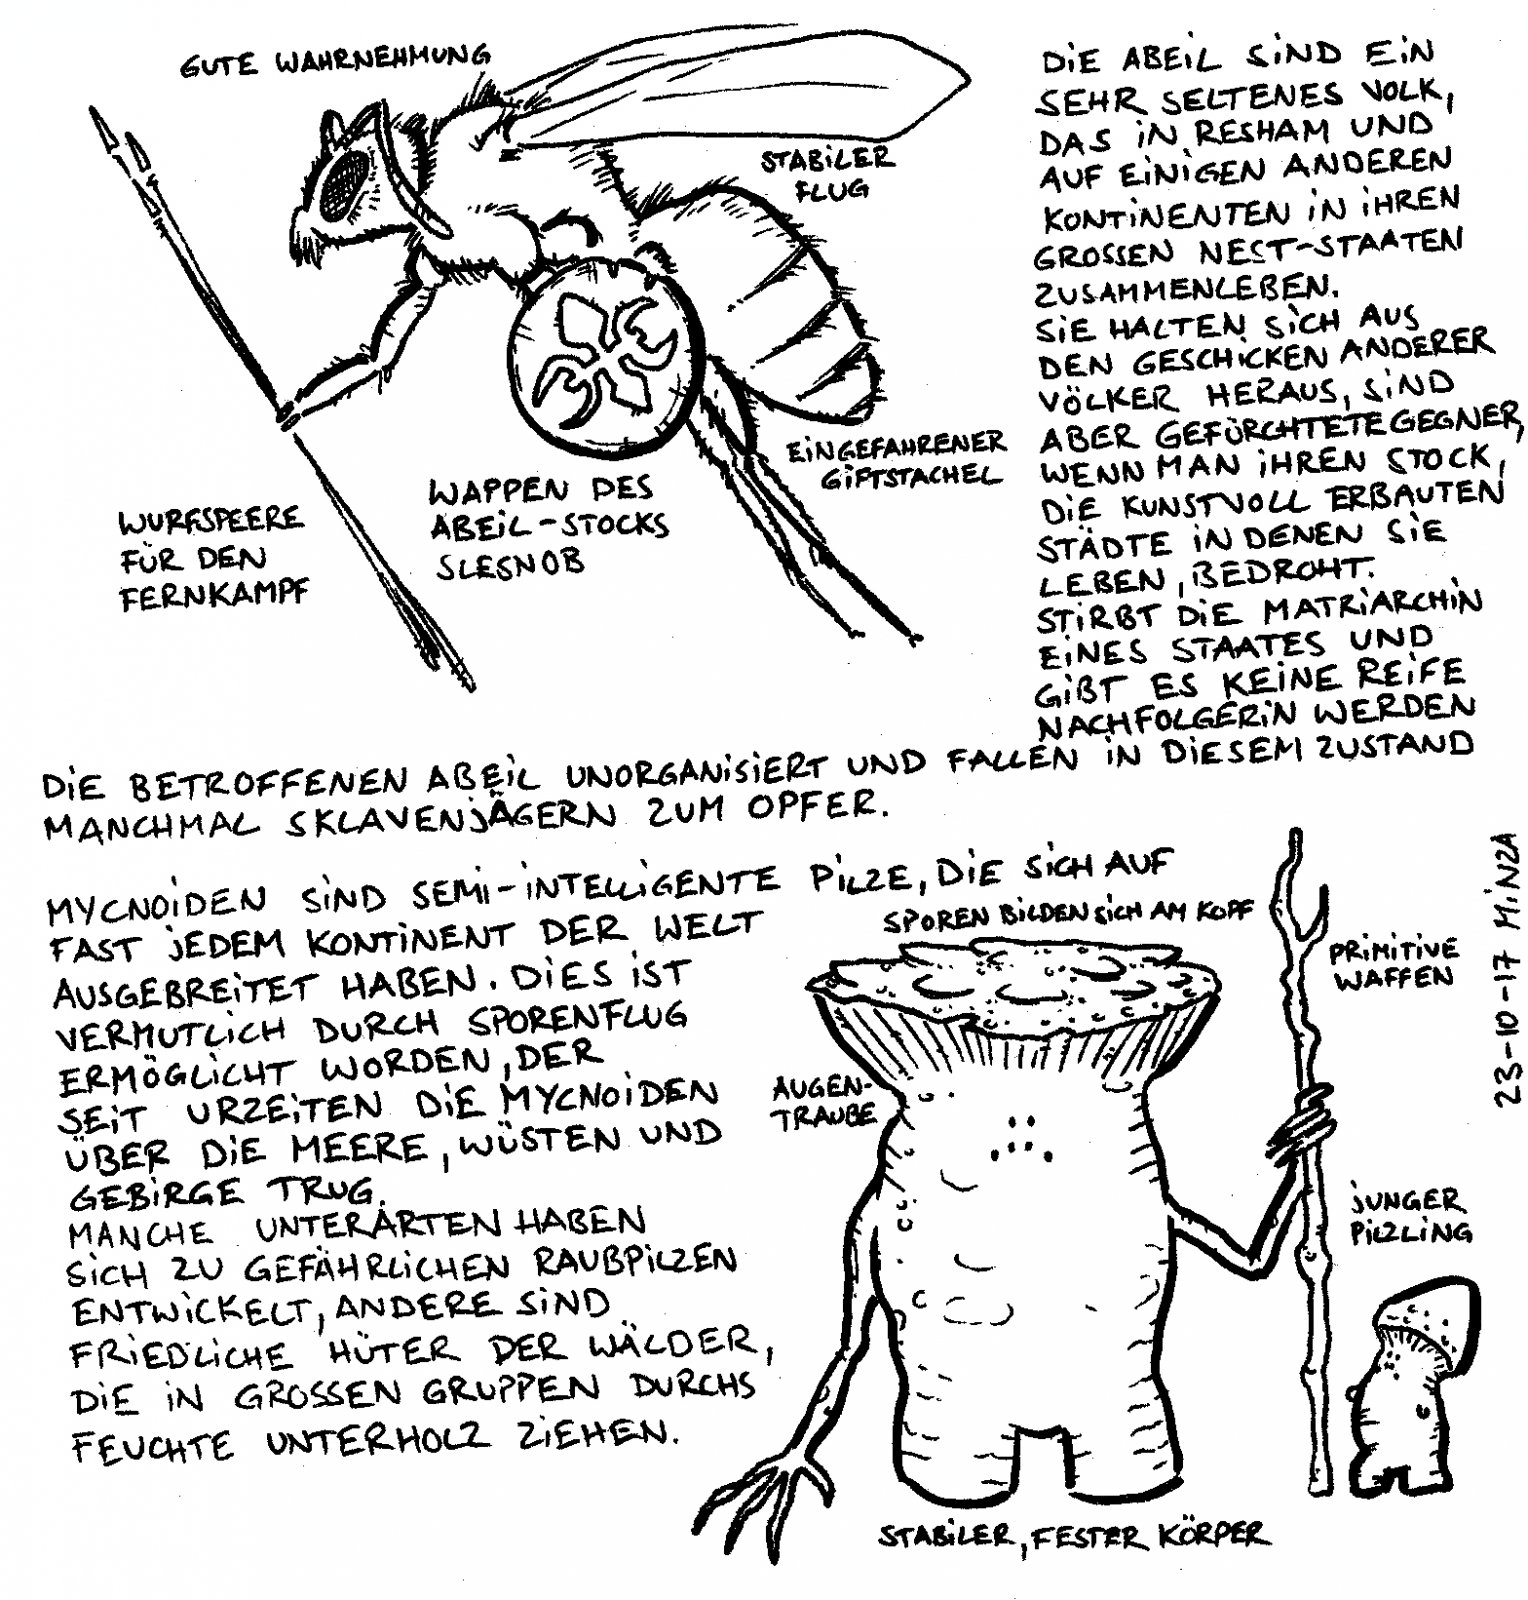 GUTE WAHRNEHMUNG
STABILER
FLUG
EINGEFAHRENER
GIFTSTACHEL
WAPPEN DES
ABEIL-STOCKS
SLESNOB
WURFSPEERE
FÜR DEN
FERNKAMPF
DIE ABEIL SIND EIN
SEHR SELTENES VOLK,
DAS IN RESHAM UND
AUF EINIGEN ANDEREN
KONTINENTEN IN IHREN
GROSSEN NEST-STAATEN
ZUSAMMENLEBEN.
SIE HALTEN SICH AUS
DEN GESCHICKEN ANDERER
VÖLKER HERAUS, SIND
ABER GEFÜRCHTETE GEGNER,
WENN MAN IHREN STOCK,
DIE KUNSTVOLL ERBAUTEN
STÄDTE IN DENEN SIE
LEBEN, BEDROHT.
STIRBT DIE MATRIARCHIN
EINES STAATES UND
GIBT ES KEINE REIFE
NACHFOLGERIN WERDEN
DIE BETROFFENEN ABEIL UNORGANISIERT UND FALLEN IN DIESEM ZUSTAND
MANCHMAL SKLAVENJÄGERN ZUM OPFER.
MYCNOIDEN SIND SEMI-INTELLIGENTE PILZE, DIE SICH AUF
FAST JEDEM KONTINENT DER WELT
AUSGEBREITET HABEN. DIES IST
VERMUTLICH DURCH SPORENFLUG
ERMÖGLICHT WORDEN, DER
SEIT URZEITEN DIE MYCNOIDEN
ÜBER DIE MEERE, WÜSTEN UND
GEBIRGE TRUG.
MANCHE UNTERARTEN HABEN
SICH ZU GEFÄHRLICHEN RAUBPILZEN
ENTWICKELT, ANDERE SIND
FRIEDLICHE HÜTER DER WÄLDER,
DIE IN GROSSEN GRUPPEN DURCHS
FEUCHTE UNTERHOLZ ZIEHEN.
SPOREN BILDEN SICH AM KOPF
PRIMITIVE
WAFFEN
AUGEN-
TRAUBE
JUNGER
PILZLING
STABILER, FESTER KÖRPER
23-10-17 MINZA